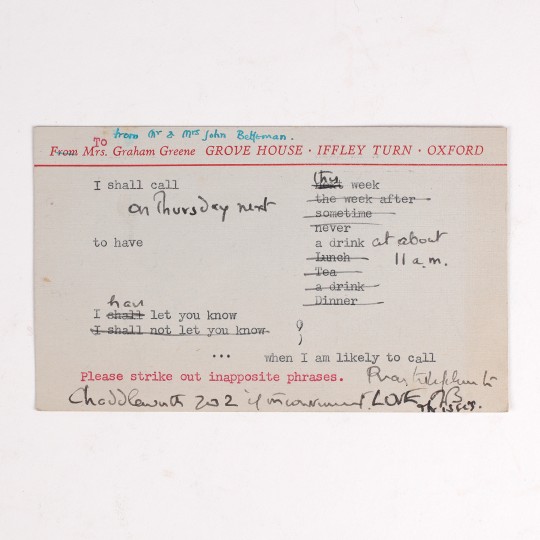 from Mr & Mrs John Betjeman.
To
From Mrs. Graham Greene GROVE HOUSE · IFFLEY TURN · OXFORD
I shall call this next week
on Thursday next the week after
sometime
never
to have a drink at about
Lunch 11 a.m.
Tea
a drink
Dinner
have
I shall let you know
I shall not let you know
... when I am likely to call
Please strike out inapposite phrases. Pray telephone to
Chaddleworth 202 if inconvenient. LOVE JB